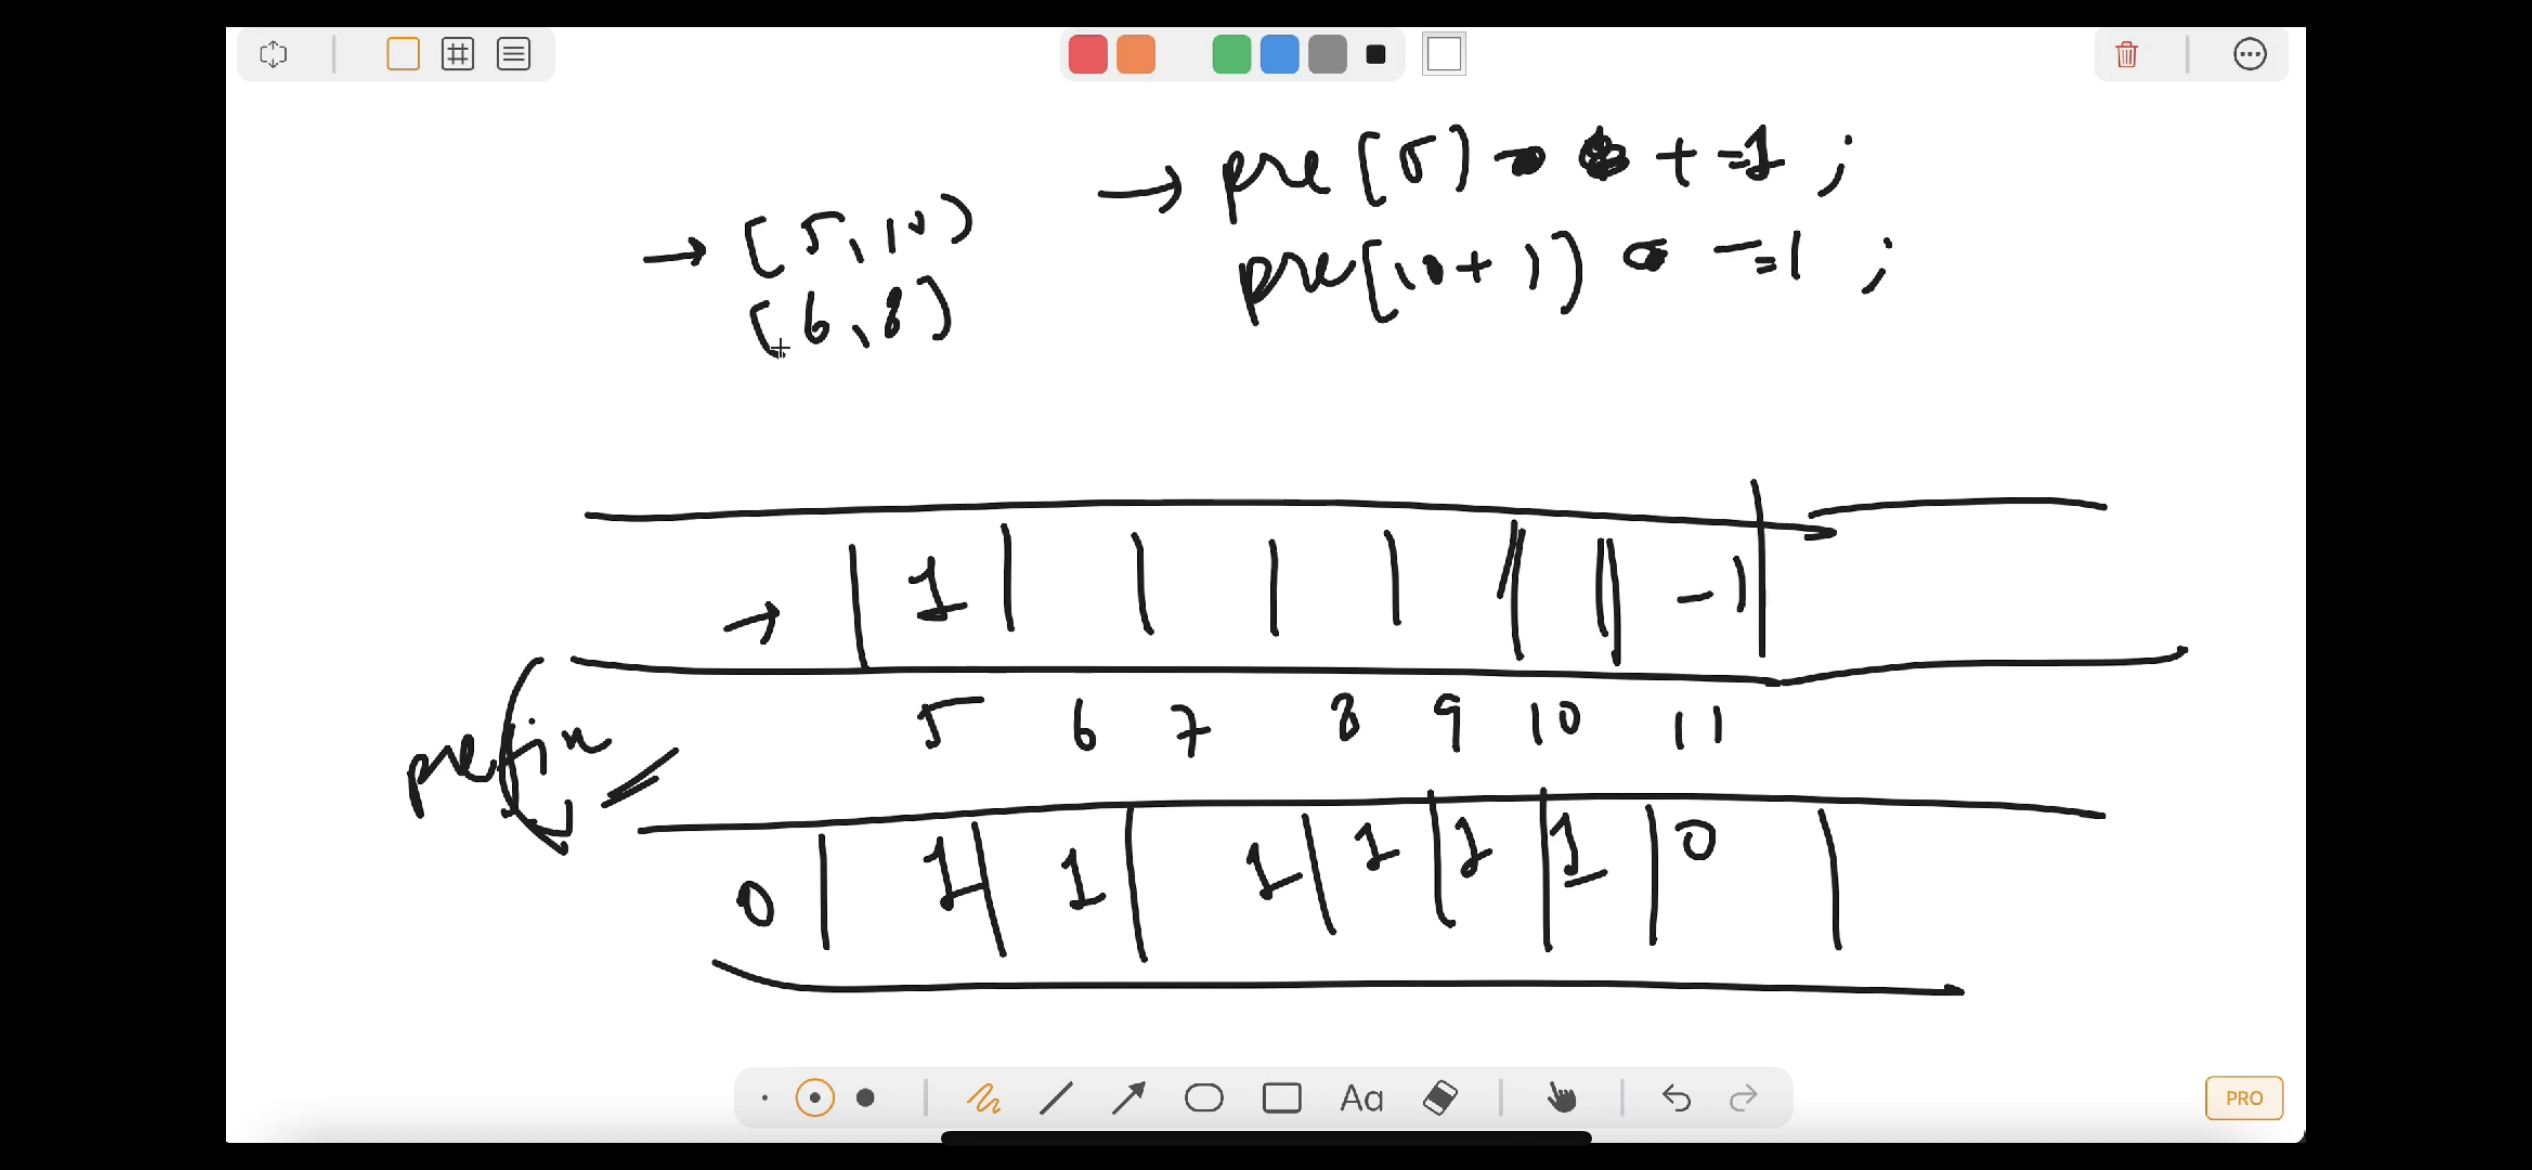 → [5,10)
[6,8]
→ pre[5] += 1 ;
pre[10+1] -= 1 ;
→ 1 -1
5 6 7 8 9 10 11
prefix
0 1 1 1 1 1 1 0
Aa
PRO